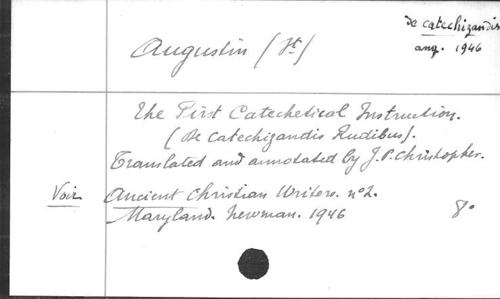 de catechizandis
ang. 1946
Augustin (St)
The First Catechetical Instruction.
(De Catechizandis Rudibus).
Translated and annotated by J.P. Christopher.
Voir Ancient Christian Writers. nº2.
Maryland. Newman. 1946 8º